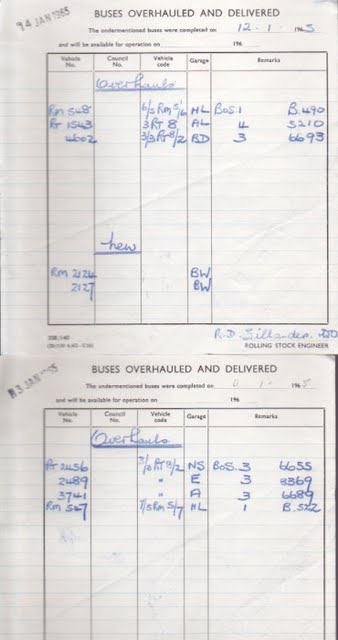 14 JAN 1965
BUSES OVERHAULED AND DELIVERED
The undermentioned buses were completed on 12 . 1 . 1965
and will be available for operation on 196
Vehicle No. Council No. Vehicle code Garage Remarks
Overhauls
RM 548 6/5 RM 5/6 HL BOS. 1 B.490
RT 1543 3 RT 8 AL 4 5210
4602 3/3 RT 8/2 BD 3 6693
new
RM 2124 BW
2127 BW
R.D.
ROLLING STOCK ENGINEER
13 JAN 1965
BUSES OVERHAULED AND DELIVERED
The undermentioned buses were completed on 11 . 1 . 1965
and will be available for operation on 196
Vehicle No. Council No. Vehicle code Garage Remarks
Overhauls
RT 2456 3/3 RT 8/2 NS BOS. 3 6655
2489 " E 3 3369
3741 " A 3 6689
RM 547 7/5 RM 5/7 HL 1 B.522